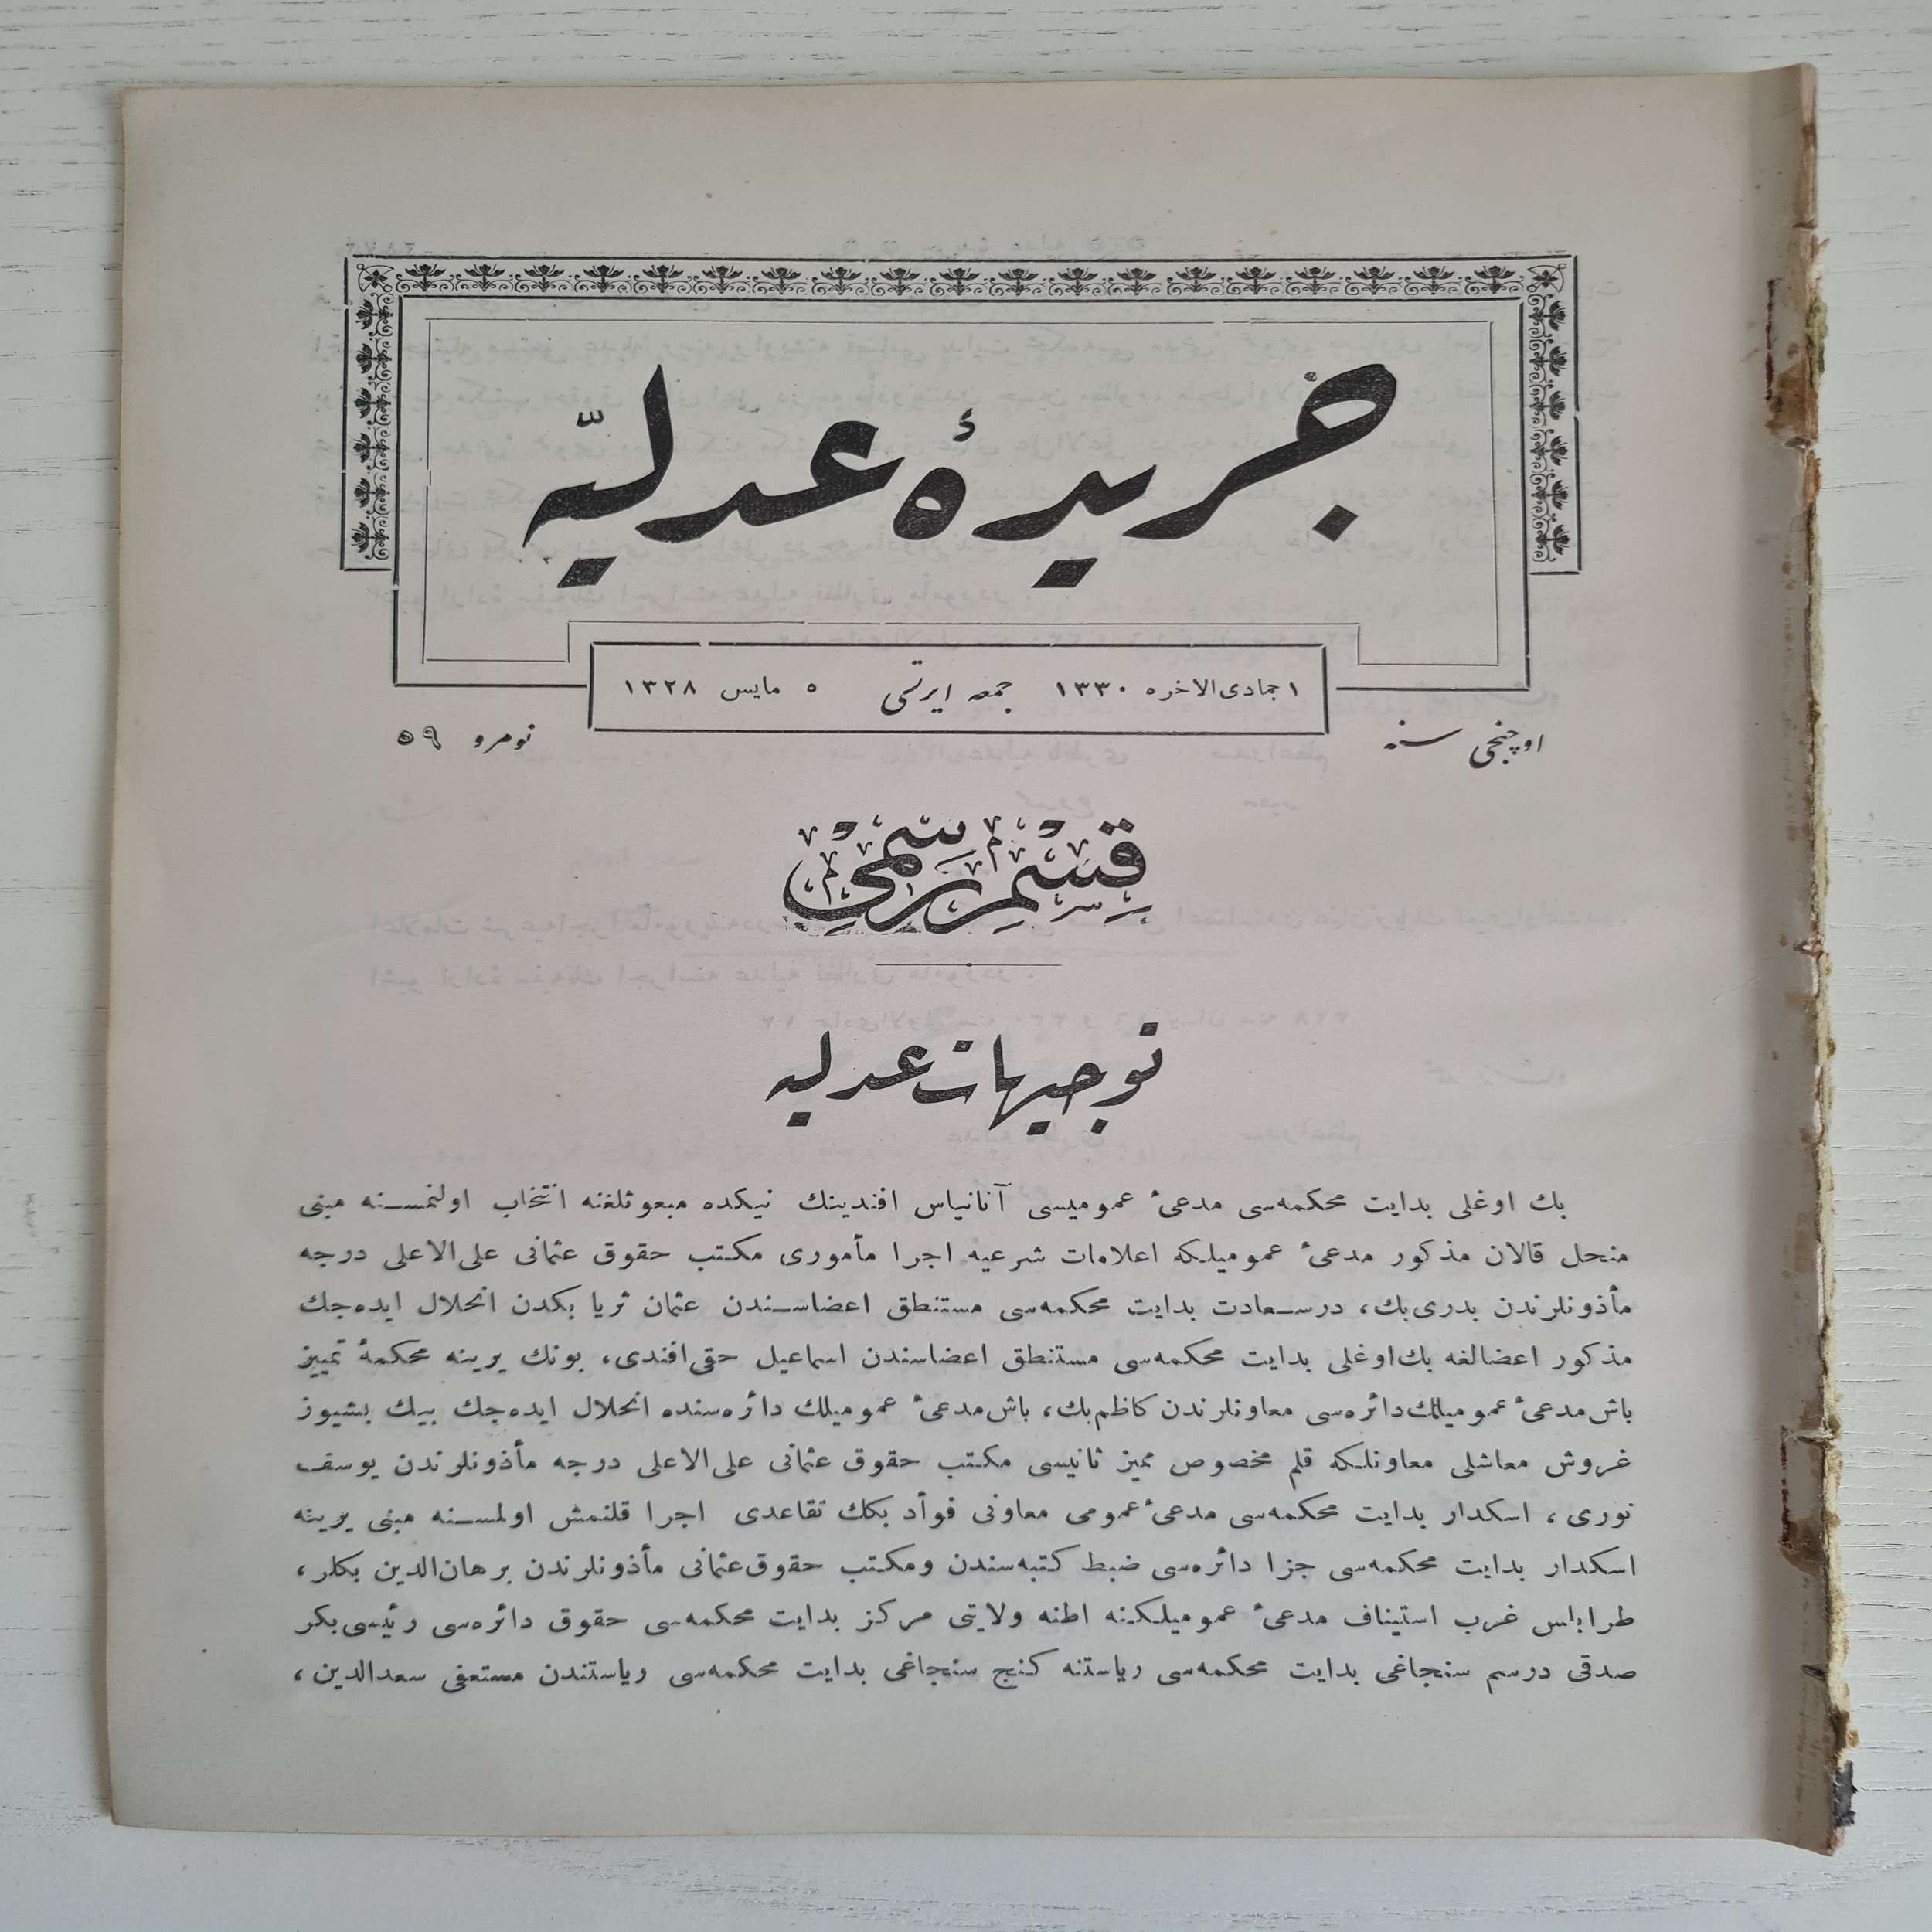 جريدۀ عدليّه
١ جمادى‌الاخره ١٣٣٠ جمعه ايرتسى ٥ مايس ١٣٢٨
اوچنجى سنه
نومرو ٥٩
قسم رسمى
توجيهات عدليه
بك اوغلى بدايت محكمه‌سى مدعىٔ عموميسى آنانياس افندينك نيكده مبعوثلغنه انتخاب اولنمسنه مبنى
منحل قالان مذكور مدعىٔ عموميلكه اعلامات شرعيه اجرا مأمورى مكتب حقوق عثمانى على‌الاعلى درجه
مأذونلرندن بدرى‌بك، درسعادت بدايت محكمه‌سى مستنطق اعضاسندن عثمان ثريا بكدن انحلال ايده‌جك
مذكور اعضالغه بك‌اوغلى بدايت محكمه‌سى مستنطق اعضاسندن اسماعيل حقى‌افندى، بونك يرينه محكمۀ تمييز
باش‌مدعىٔ عموميلك‌دائره‌سى معاونلرندن كاظم‌بك، باش‌مدعىٔ عموميلك دائره‌سنده انحلال ايده‌جك بيك بشيوز
غروش معاشلى معاونلكه قلم مخصوص مميز ثانيسى مكتب حقوق عثمانى على‌الاعلى درجه مأذونلرندن يوسف
نورى، اسكدار بدايت محكمه‌سى مدعىٔ‌عمومى معاونى فوأد بكك تقاعدى اجرا قلنمش اولمسنه مبنى يرينه
اسكدار بدايت محكمه‌سى جزا دائره‌سى ضبط كتبه‌سندن ومكتب حقوق‌عثمانى مأذونلرندن برهان‌الدين بكلر،
طرابلس غرب استيناف مدعىٔ عموميلكنه اطنه ولايتى مركز بدايت محكمه‌سى حقوق دائره‌سى رئيسى‌بكر
صدقى درسم سنجاغى بدايت محكمه‌سى رياستنه كنج سنجاغى بدايت محكمه‌سى رياستندن مستعفى سعدالدين،